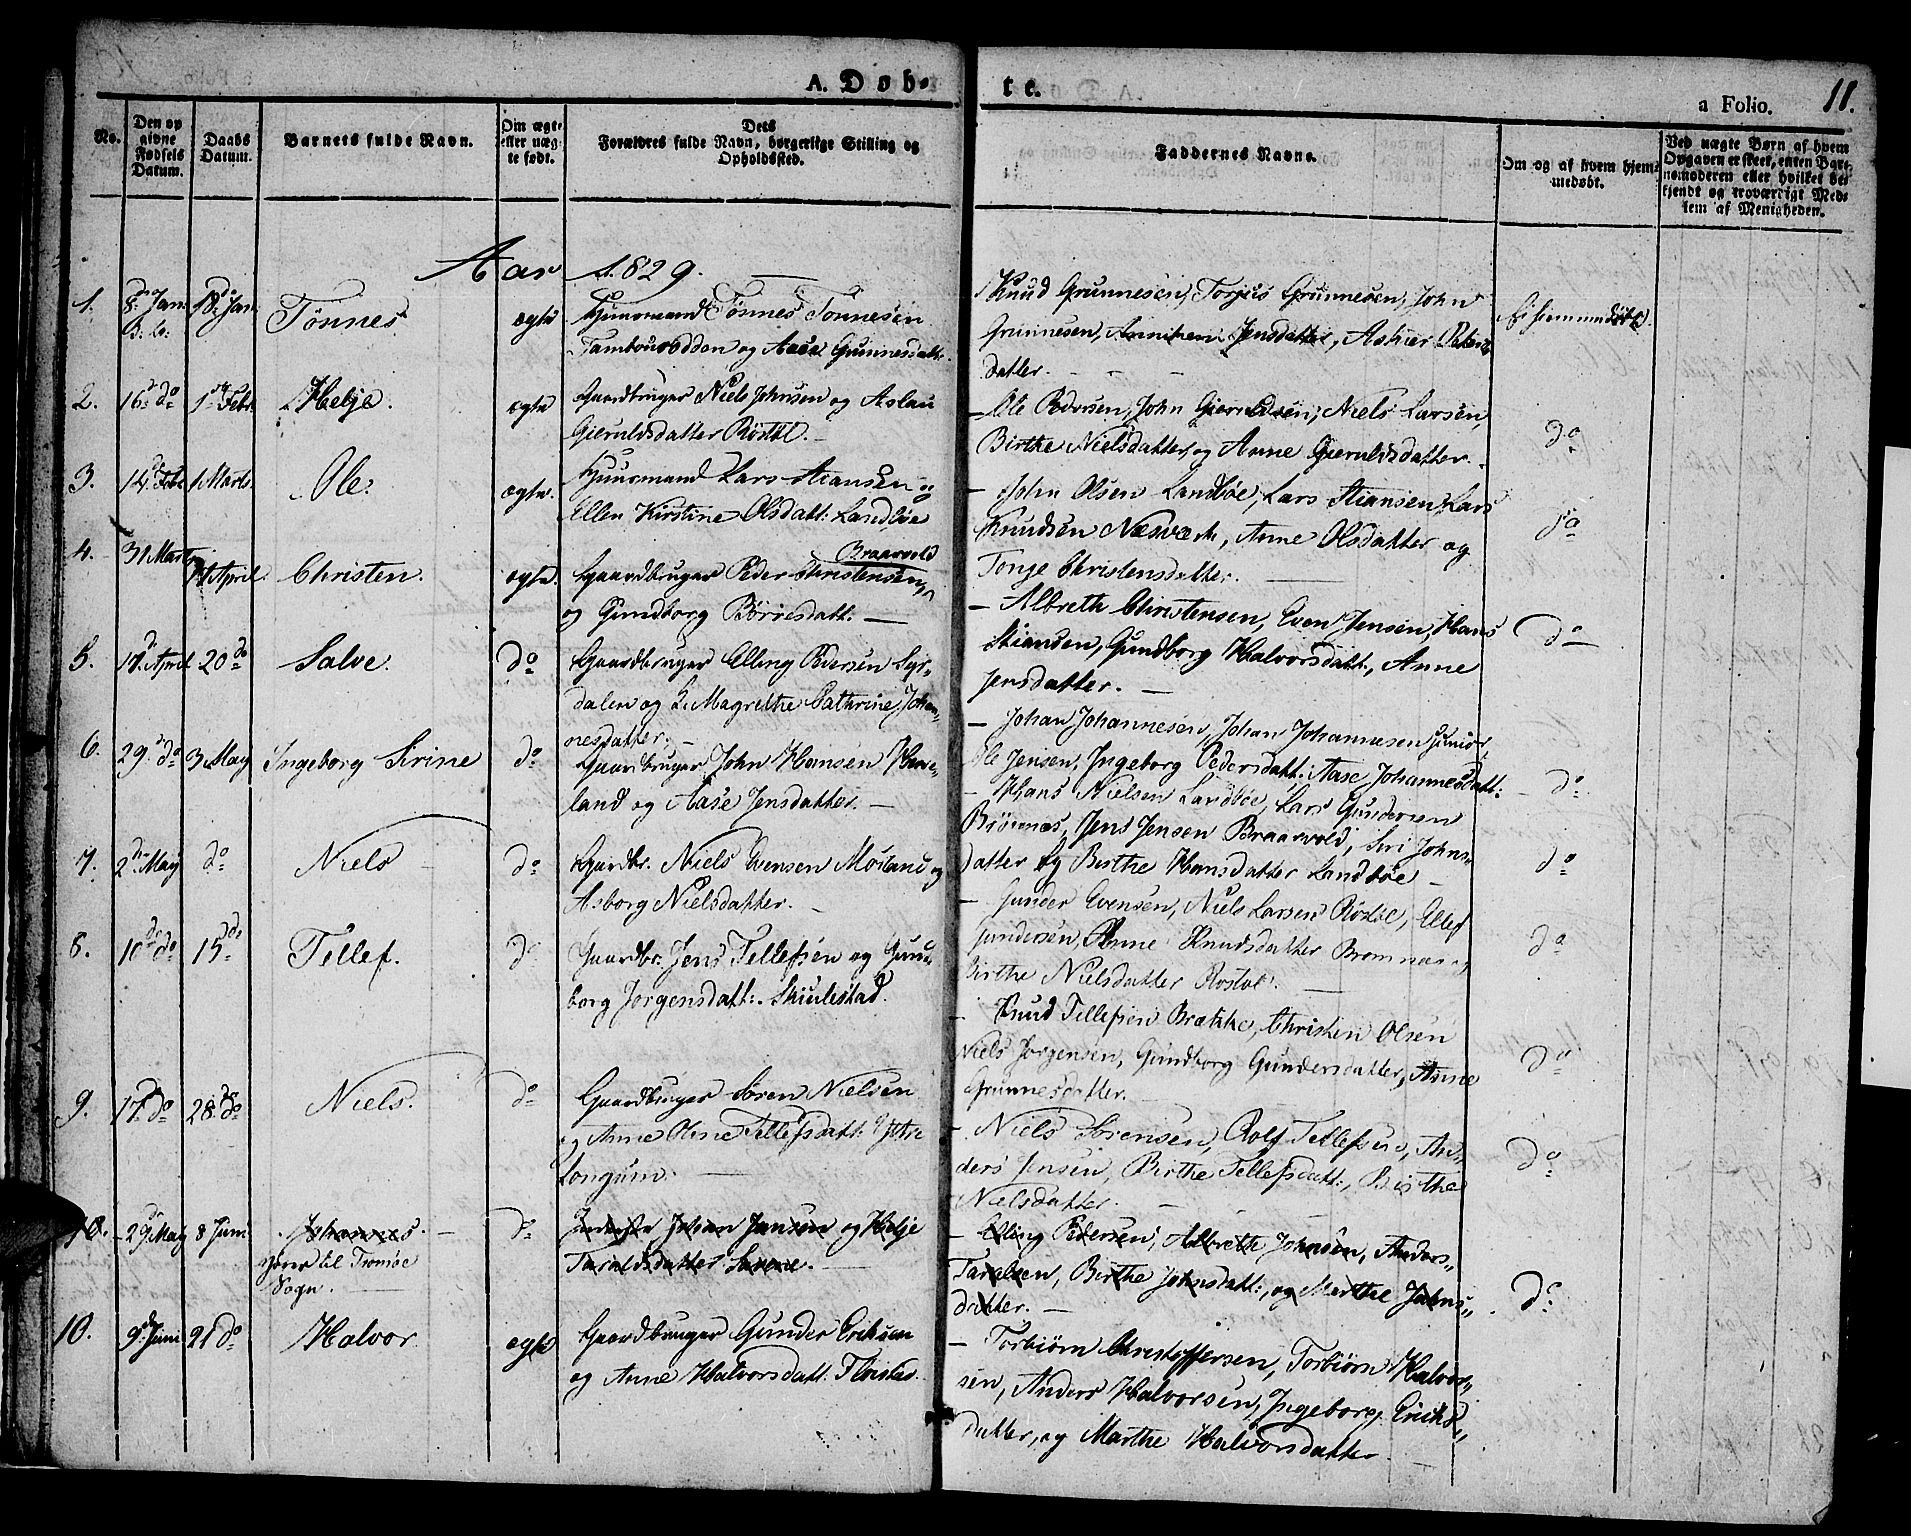 A. Døb-
te.
a Folio. 11.
No.
Den op
givne
Fødsels
Datum.
Daabs
Datum.
Barnets fulde Navn.
Om ægte
eller uæg-
te født.
Dets
Forældres fulde Navn, borgerlige Stilling og
Opholdssted.
Faddernes Navne.
Om og af hvem hjem-
medøbt.
Ved uægte Børn af hvem
Opgaven er skeet, enten Bar-
nemoderen eller hvilket be-
kjendt og troværdigt Med-
lem af Menigheden.
Aar 1829.
1. 8 Jan: 18 Jan: Tönnes ægte Huusmand Tönnes Tönnesen
Tambourodden og Aase Gunnesdatt:
Knud Grunnesen, Torjus Grunnesen, John
Grunnesen, Anniken Jensdatter, Asher Peders
datter.
Ei hjemmedöbt.
2. 16 do 1 Febr. Helje. ægte Gaardbruger Niels Johnsen og Aslau
Gieruldsdatter Röstöl.
Ole Pedersen, John Gieruldsen, Niels Larsen,
Birthe Nielsdatter, og Anne Gieruldsdatter.
do
3. 14 Febr 1 Marts. Ole. ægte. Huusmand Lars Stiansen og
Ellen Kirstine Olsdatt: Landböe
John Olsen Landböe, Lars Stiansen, Lars
Knudsen Næsværk, Anne Olsdatter og
Tonje Christensdatter.
do
4. 31 Marts April. Christen. ægte. Gaardbruger Peder Christensen,
Braarvold
og Gundborg Börresdatt:
Albreth Christensen, Even Jensen, Hans
Stiansen, Gundborg Halvorsdatt:, Anne
Jensdatter.
do
5. 17 April 20 do Salve. do Gaardbruger Elling Pedersen Syr-
dalen og Magrethe Cathrine Johan-
nesdatter.
Johan Johannesen, Johan Johannesen junior,
Ole Jensen, Ingeborg Pedersdatt: Aase Johannesdatt:
do
6. 29 do 3 May Ingeborg Sirine do Gaardbruger John Hansen
land og Aase Jensdatter.
Hans Nielsen Landböe, Lars Gundersen
Jens Jensen Braarvold, Siri Johns-
datter og Birthe Hansdatter Landböe
do
7. 2 May do Niels do Gaardbr. Niels Evensen Mosland og
Asborg Nielsdatter.
Gunder Evensen, Niels Larsen Röstöl, Ellef
Gundersen, Anne Knudsdatter Bromnæs og
Birthe Nielsdatter Rostöl.
do
8. 10 do 15 do Tellef. do Gaardbr. Jens Tellefsen og Gund-
borg Jorgensdatt: Skiulestad.
Knud Tellefsen Brække, Christen Olsen
Niels Jorgensen, Gundborg Gundersdatter, Anne
Grunnesdatter.
do
9. 17 do 28 do Niels. do Gaardbruger Sören Nielsen
og Anne Oline Tellefsdatt: Ytre
Longum.
Niels Sorensen, Rolf Tellefsen, An-
ders Jensen, Birthe Tellefsdatt:, Birthe
Nielsdatter.
do
10. 29 May 8 Juni Johannes. do Johan Jansen og Helje
Taraldsdatter
hører til Tromöe
Sogn.
Elling Pedersen, Albreth Johnsen, Anders
Taralsen, Birthe Johnsdatt:, og Marthe Johns-
datter.
do
10. 9 Juni 21 do Halvor ægte Gaardbruger Gunder Eriksen
og Anne Halvorsdatt: Flristad.
Torbiörn Christoffersen, Torbiörn Halvor-
sen, Anders Halvorsen, Ingeborg Eriks-
datter, og Marthe Halvorsdatter